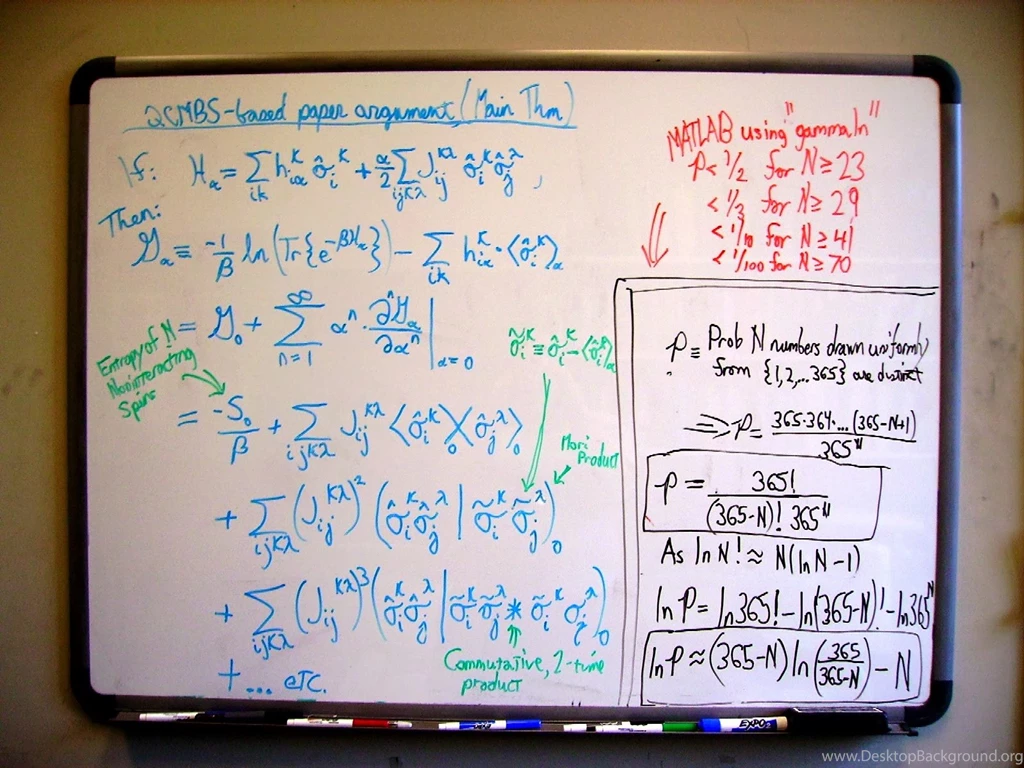 QCMBS-based paper argument (Main Thm)
If: H_α = Σ_{ik} h_{iα}^κ σ̂_i^κ + α/2 Σ_{ijκλ} J_{ij}^{κλ} σ̂_i^κ σ̂_j^λ ,
Then:
𝒢_α ≡ -1/β ln(Tr{e^{-βH_α}}) - Σ_{ik} h_{iα}^κ · ⟨σ̂_i^κ⟩_α
= 𝒢_0 + Σ_{n=1}^∞ α^n · ∂^n 𝒢_α / ∂α^n |_{α=0}
σ̃_i^κ ≡ σ̂_i^κ - ⟨σ̂_i^κ⟩_α
Entropy of N
Noninteracting
Spins
= -S_0/β + Σ_{ijκλ} J_{ij}^{κλ} ⟨σ̂_i^κ⟩_0 ⟨σ̂_j^λ⟩_0
Mori
Product
+ Σ_{ijκλ} (J_{ij}^{κλ})^2 (σ̂_i^κ σ̂_j^λ | σ̃_i^κ σ̃_j^λ)_0
+ Σ_{ijκλ} (J_{ij}^{κλ})^3 (σ̂_i^κ σ̂_j^λ | σ̃_i^κ σ̃_j^λ * σ̃_i^κ σ_j^λ)_0
Commutative, 2-time
product
+ ... etc.
MATLAB using "gammaln"
P < 1/2 for N ≥ 23
< 1/3 for N ≥ 29
< 1/10 for N ≥ 41
< 1/100 for N ≥ 70
P ≡ Prob N numbers drawn uniformly
from {1,2,...365} are distinct
⇒ P = 365·364·...(365-N+1) / 365^N
P = 365! / (365-N)! 365^N
As ln N! ≈ N(ln N - 1)
ln P = ln 365! - ln(365-N)! - ln 365^N
ln P ≈ (365-N) ln(365/(365-N)) - N
EXPO
www.DesktopBackground.org